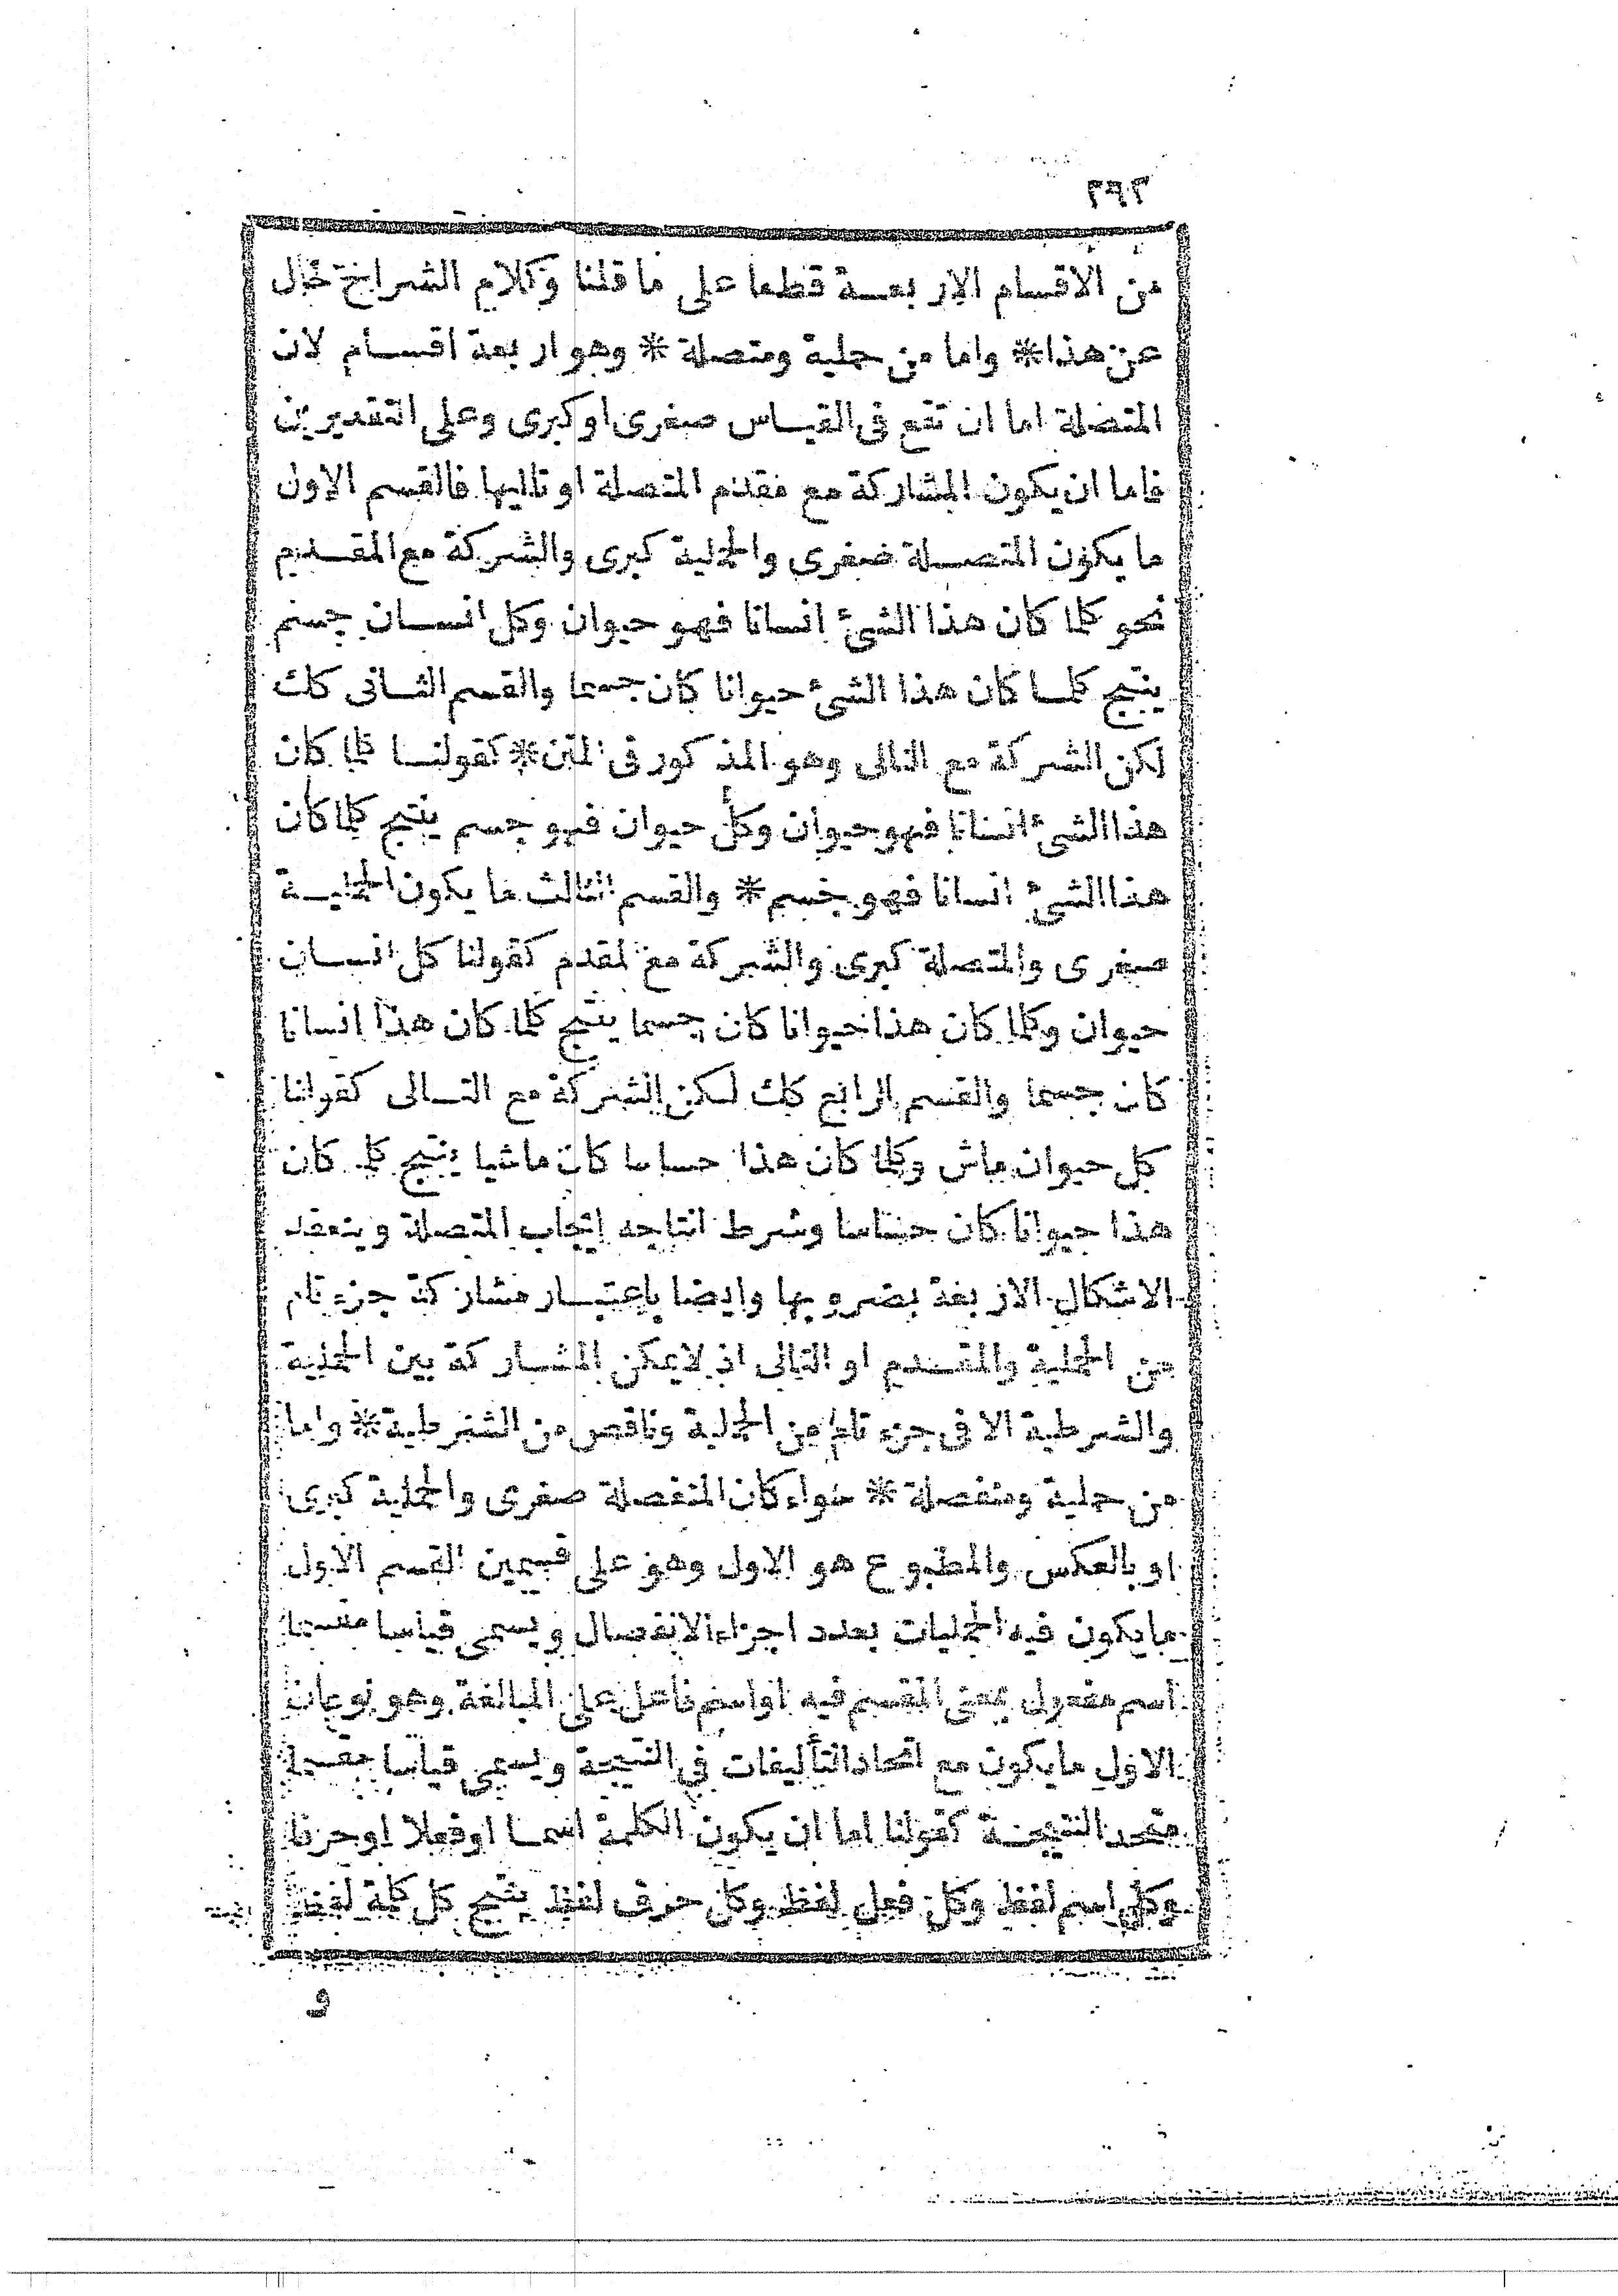 من الاقسام الاربعة قطعا على ما قلنا وكلام الشراح خال
عن هذا * واما من حملية ومتصلة * وهو اربعة اقسام لان
المتصلة اما ان تقع فى القياس صغرى او كبرى وعلى التقديرين
فاما ان يكون المشاركة مع مقدم المتصلة او تاليها فالقسم الاول
ما يكون المتصلة صغرى والحملية كبرى والشركة مع المقدم
نحو كلما كان هذا الشئ انسانا فهو حيوان وكل انسان جسم
ينتج كلما كان هذا الشئ حيوانا كان جسما والقسم الثانى كك
لكن الشركة مع التالى وهو المذكور فى المتن * كقولنا كلما كان
هذا الشئ انسانا فهو حيوان وكل حيوان فهو جسم ينتج كلما كان
هذا الشئ انسانا فهو جسم * والقسم الثالث ما يكون الحملية
صغرى والمتصلة كبرى والشركة مع المقدم كقولنا كل انسان
حيوان وكلما كان هذا حيوانا كان جسما ينتج كلما كان هذا انسانا
كان جسما والقسم الرابع كك لكن الشركة مع التالى كقولنا
كل حيوان ماش وكلما كان هذا حساسا كان ماشيا ينتج كلما كان
هذا حيوانا كان حساسا وشرط انتاجه ايجاب المتصلة وينعقد
الاشكال الاربعة بضروبها وايضا باعتبار مشاركة جزء تام
من الحملية والمقدم او التالى اذ لا يمكن المشاركة بين الحملية
والشرطية الا فى جزء تام من الحملية وناقص من الشرطية * واما
من حملية ومنفصلة * سواء كان المنفصلة صغرى والحملية كبرى
او بالعكس والمطبوع هو الاول وهو على قسمين القسم الاول
ما يكون فيه الحمليات بعدد اجزاء الانفصال ويسمى قياسا مقسما
اسم مفعول بمعنى المقسم فيه او اسم فاعل على المبالغة وهو نوعان
الاول ما يكون مع اتحاد التأليفات فى النتيجة ويسمى قياسا مقسما
متحد النتيجة كقولنا اما ان يكون الكلمة اسما او فعلا او حرفا
وكل اسم لفظ وكل فعل لفظ وكل حرف لفظ ينتج كل كلمة لفظ
و